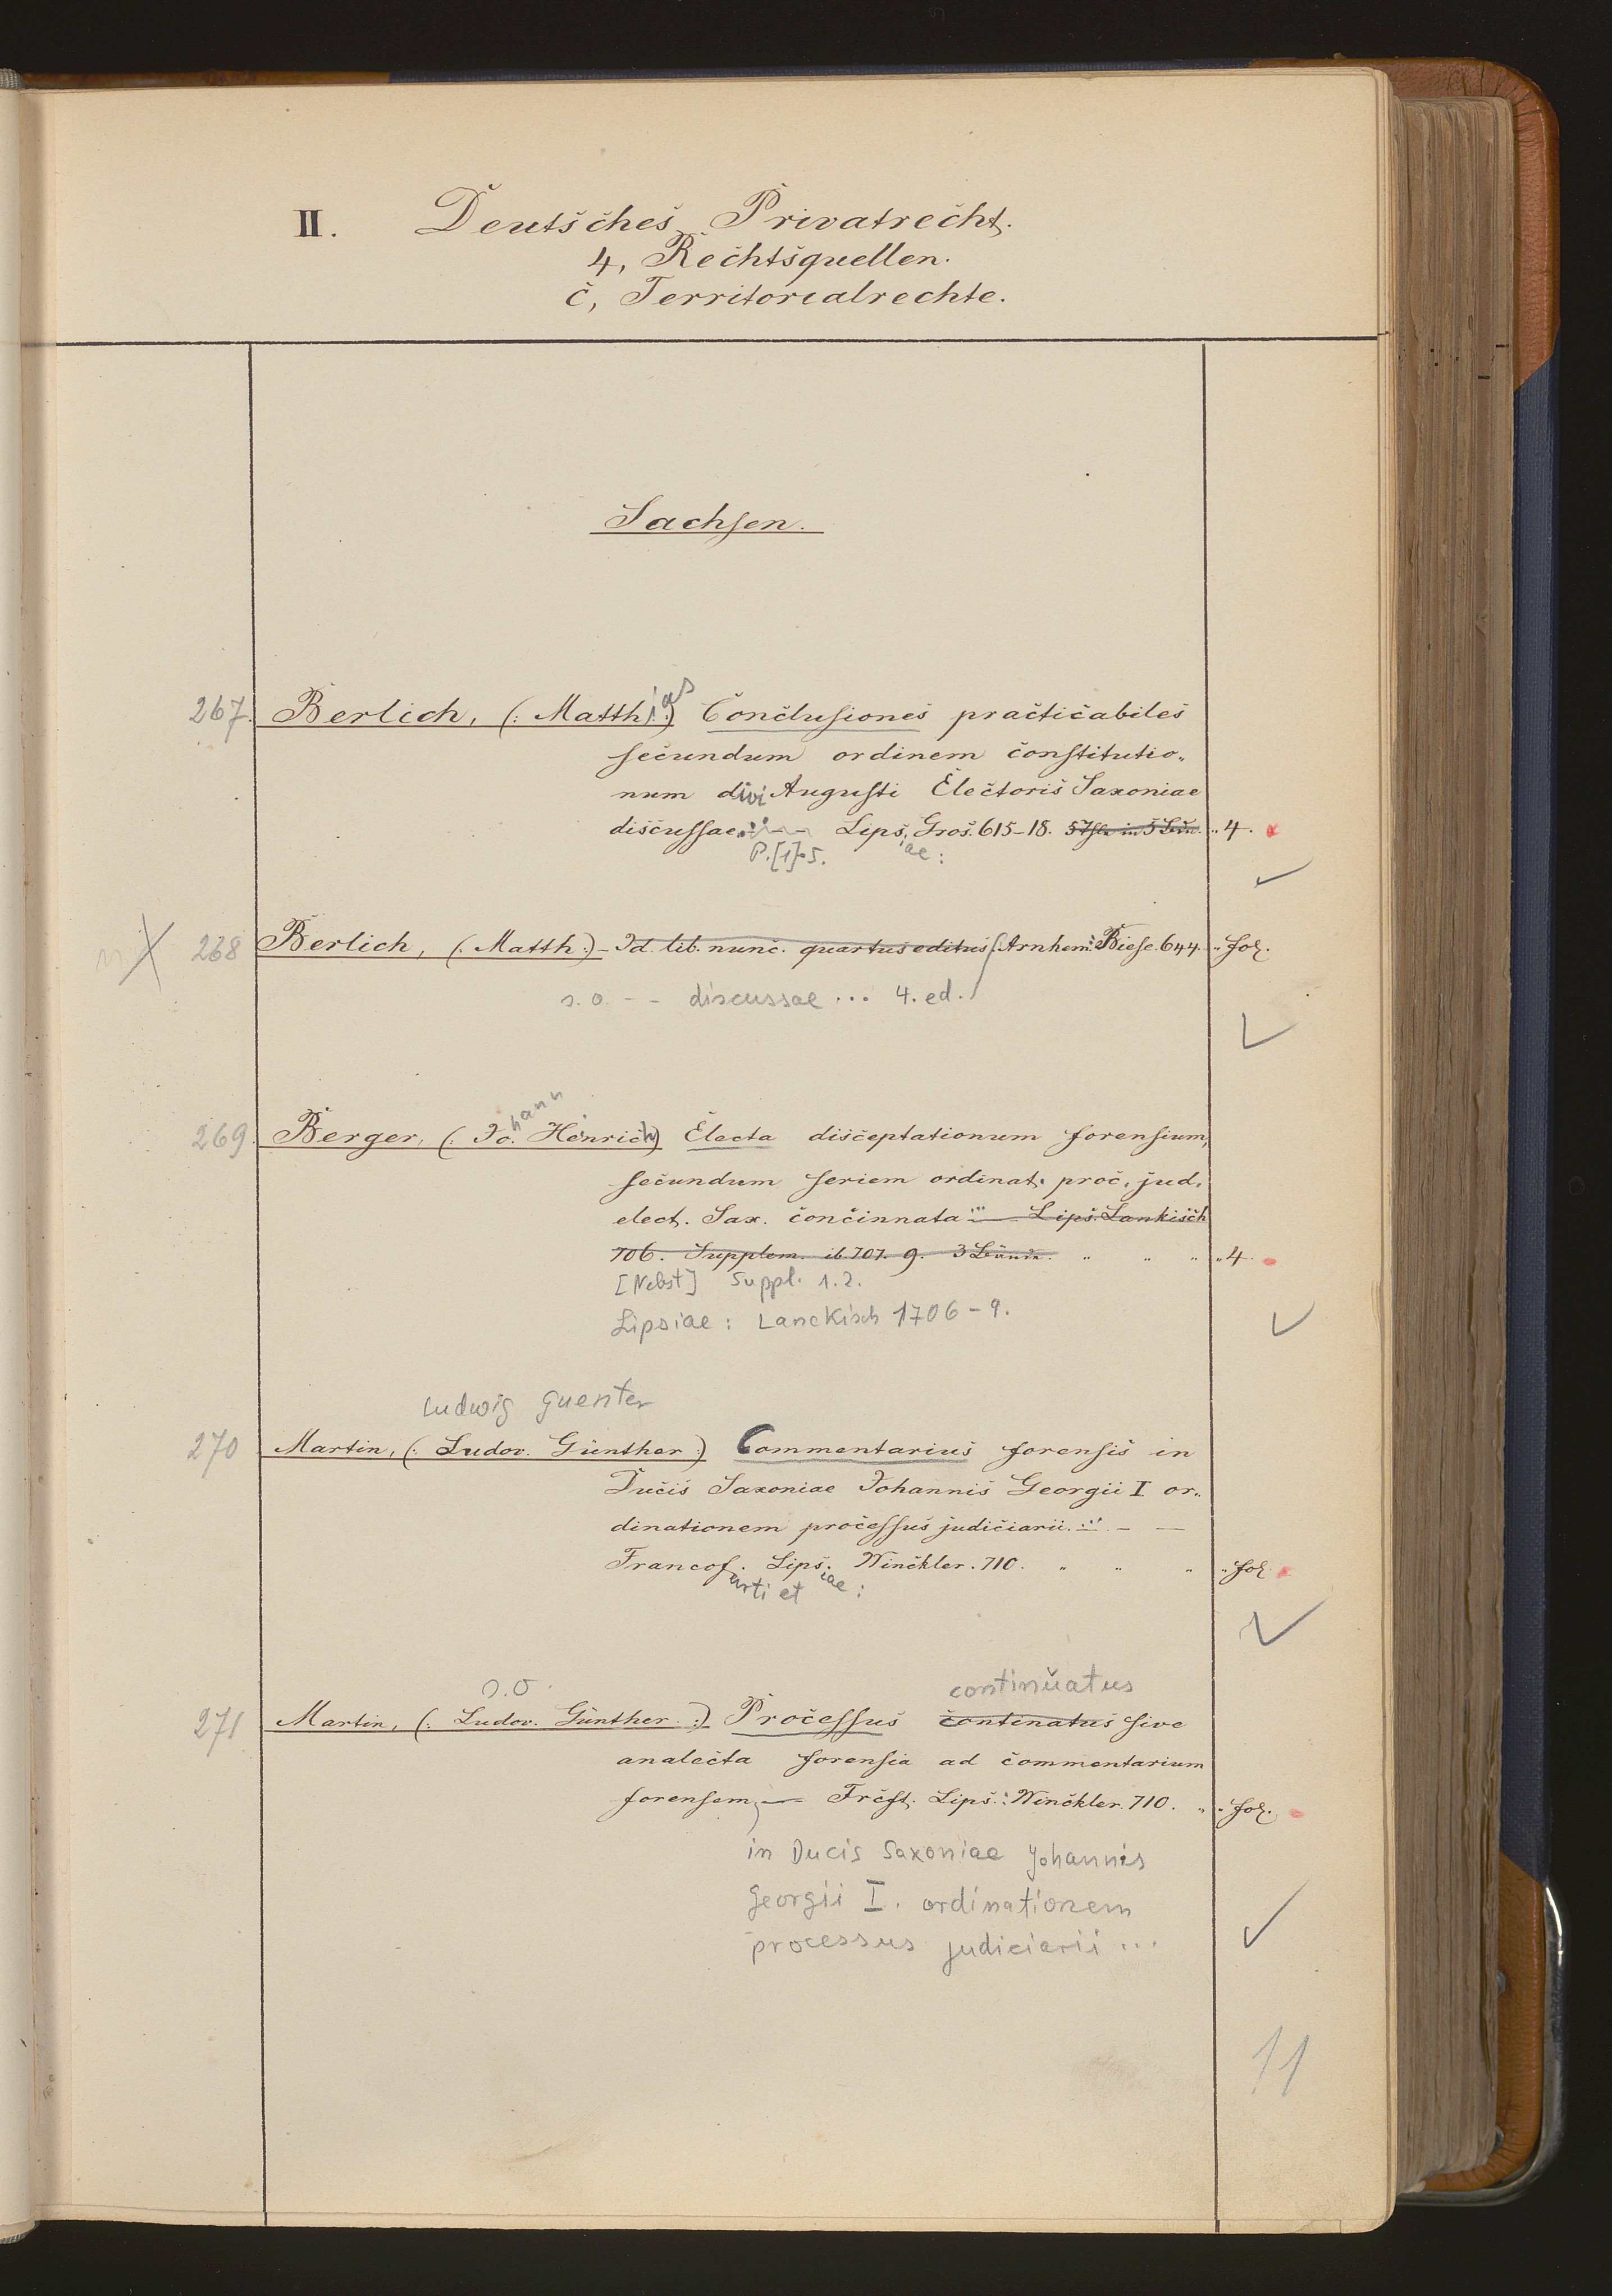 II. Deutsches Privatrecht.
4, Rechtsquellen.
c, Territorialrechte.
Sachsen.
267. Berlich, (: Matthias :) Conclusiones practicabiles
secundum ordinem constitutio„
num divi Augusti Electoris Saxoniae
discussae... Lips. Gros. 615-18. 5 Thle in 5 Bdn. „ 4.
P.[1]-5. iae:
268 Berlich, (: Matth :) - Id. lib. nunc. quartus editus Arnhem: Biese. 644. „ fol.
s. o. - - discussae ... 4. ed.
hann
269. Berger, (: Jo. Henrich) Electa disceptationum forensium,
secundum seriem ordinat. proc. jud.
elect. Sax. concinnata ... Lips. Lankisch
706. Supplem. ib 707. 9. 3 Bände. „ „ „ „ 4.
[Nebst] Suppl. 1.2.
Lipsiae: Lanckisch 1706-9.
Ludwig Guenter
270 Martin, (: Ludov. Günther :) Commentarius forensis in
Ducis Saxoniae Johannis Georgii I or„
dinationem processus judiciarii. ... - —
Francof. Lips. Winckler. 710. „ „ „ „ fol.
urti et iae:
s. o. continuatus
271 Martin, (: Ludov. Günther :) Processus continatus sive
analecta forensia ad commentarium
forensem, — Frcft. Lips.: Winckler. 710. „ „ fol.
in Ducis Saxoniae Johannis
Georgii I. ordinationem
processus judiciarii ...
11